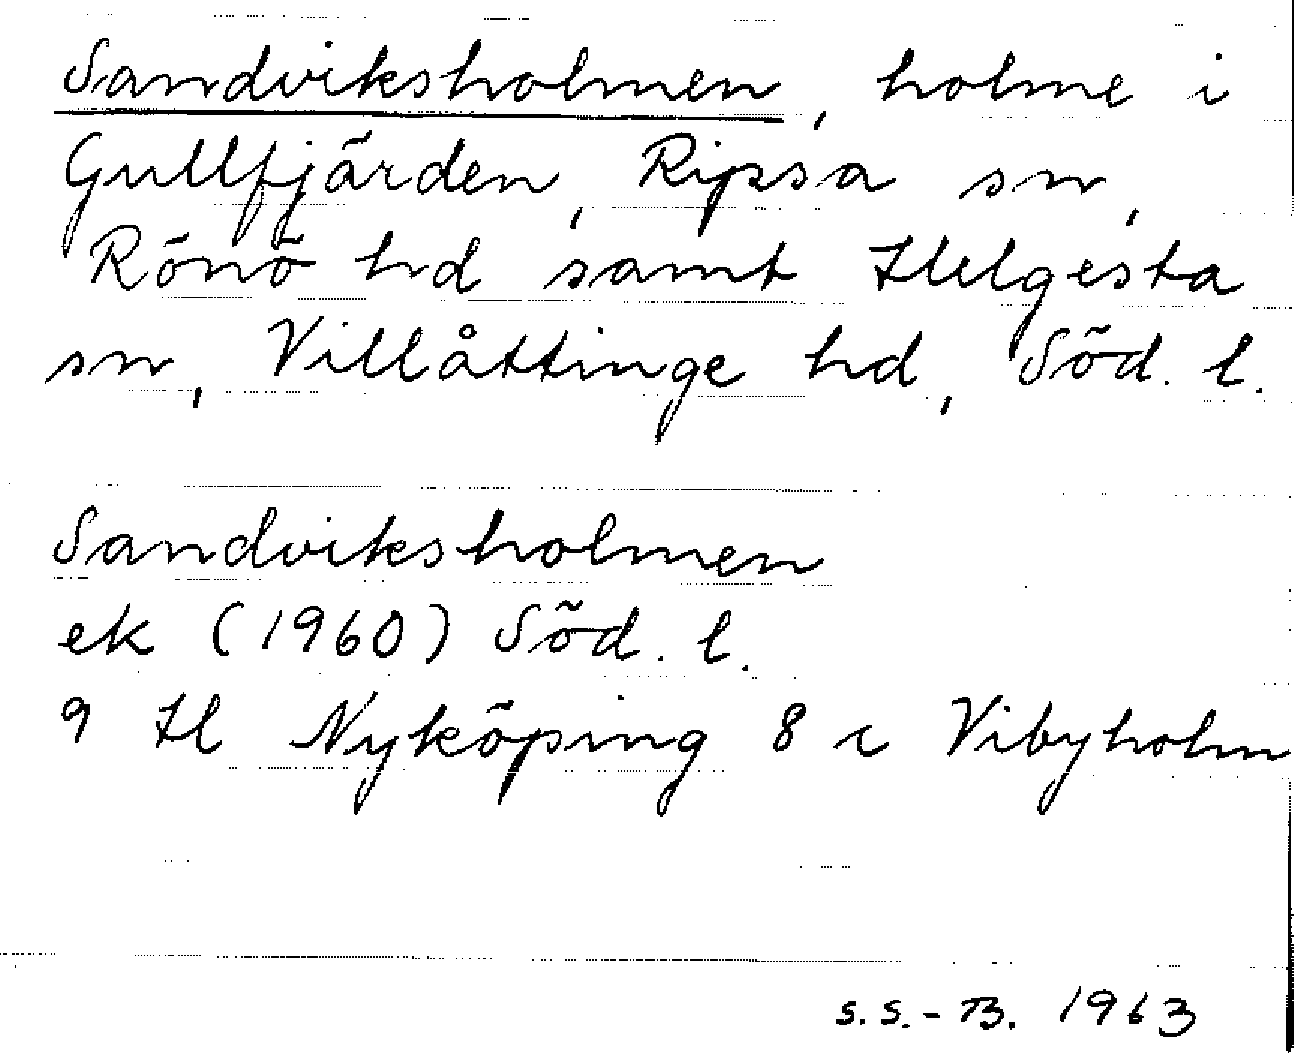 Sandviksholmen, holme i
Gullfjärden, Ripsa sn,
Rönö hd samt Helgesta
sn, Villåttinge hd, Söd. l.
Sandviksholmen
ek (1960) Söd. l.
9 H Nyköping 8 c Vibyholm
S.S.-B. 1963